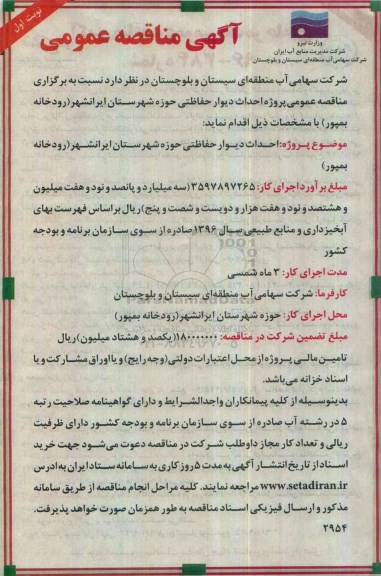 نوبت اول
آگهی مناقصه عمومی
وزارت نیرو
شرکت مدیریت منابع آب ایران
شرکت سهامی آب منطقه‌ای سیستان و بلوچستان
شرکت سهامی آب منطقه‌ای سیستان و بلوچستان در نظر دارد نسبت به برگزاری
مناقصه عمومی پروژه احداث دیوار حفاظتی حوزه شهرستان ایرانشهر(رودخانه
بمپور) با مشخصات ذیل اقدام نماید:
موضوع پروژه:احداث دیوار حفاظتی حوزه شهرستان ایرانشهر(رودخانه
بمپور)
مبلغ برآورد اجرای کار: ۳۵۹۷۸۹۷۲۶۵(سه میلیارد و پانصد و نود و هفت میلیون
و هشتصد و نود و هفت هزار و دویست و شصت و پنج)ریال براساس فهرست بهای
آبخیزداری و منابع طبیعی سال ۱۳۹۶صادره از سوی سازمان برنامه و بودجه
کشور
مدت اجرای کار: ۳ ماه شمسی
کارفرما: شرکت سهامی آب منطقه‌ای سیستان و بلوچستان
محل اجرای کار: حوزه شهرستان ایرانشهر(رودخانه بمپور)
مبلغ تضمین شرکت در مناقصه: ۱۸۰۰۰۰۰۰۰(یکصد و هشتاد میلیون)ریال
تامین مالی پروژه از محل اعتبارات دولتی(وجه رایج) و یا اوراق مشارکت و یا
اسناد خزانه می‌باشد.
بدینوسیله از کلیه پیمانکاران واجدالشرایط و دارای گواهینامه صلاحیت رتبه
۵ در رشته آب صادره از سوی سازمان برنامه و بودجه کشور دارای ظرفیت
ریالی و تعداد کار مجاز داوطلب شرکت در مناقصه دعوت می‌شود جهت خرید
اسناد از تاریخ انتشار آگهی به مدت ۵ روز کاری به سامانه ستاد ایران به ادرس
www.setadiran.ir مراجعه نمایند. کلیه مراحل انجام مناقصه از طریق سامانه
مذکور و ارسال فیزیکی اسناد مناقصه به طور همزمان صورت خواهد پذیرفت.
۲۹۵۴